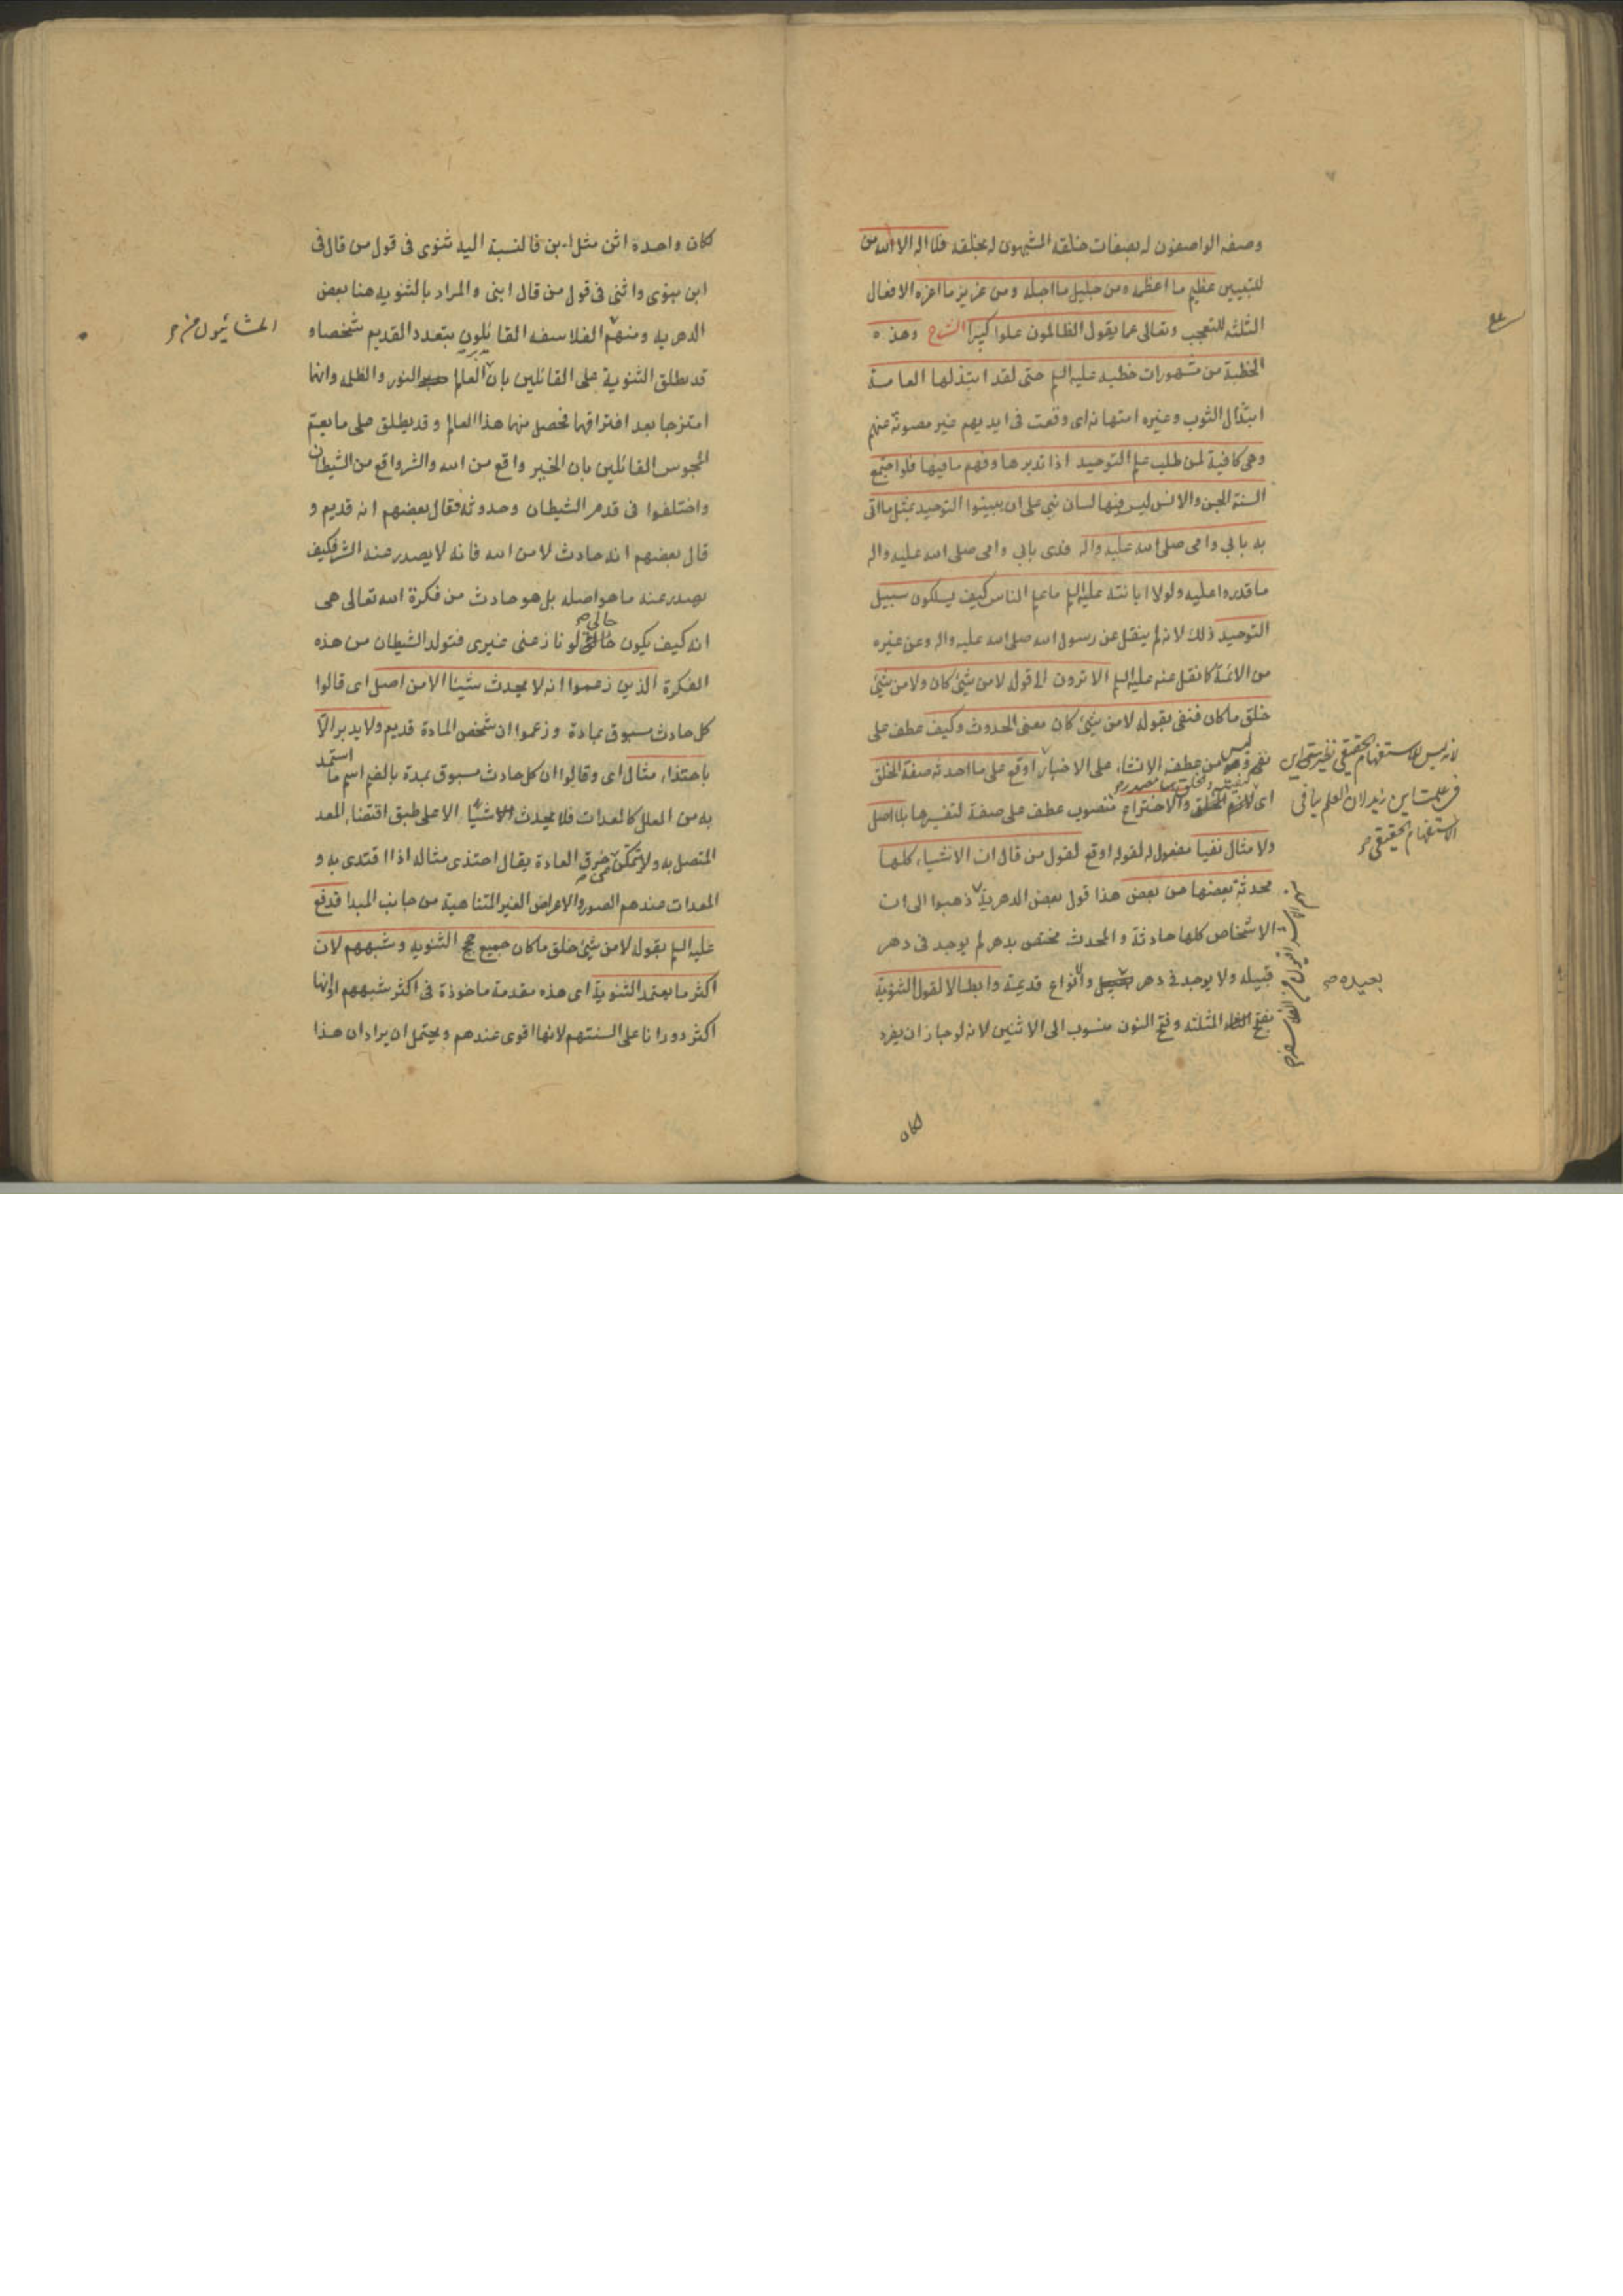 وصفه الواصفون له بصفات خلقه المشبهون له بخلقه فلا اله الا الله من
للتبيين عظيم ما اعظمه ومن جليل ما اجله ومن عزيز ما اعزه الافعال
الثلثة للتعجب وتعالى عما يقول الظالمون علوا كبيرا الشرح وهذه
الخطبة من مشهورات خطبه عليه السلم حتى لقد ابتذلها العامة
ابتذال الثوب وغيره امتهانه اى وقعت فى ايديهم غير مصونة عنهم
وهى كافية لمن طلب علم التوحيد اذا تدبرها وفهم ما فيها فلو اجتمع
السنة الجن والانس ليس فيها لسان نبى على ان يبينوا التوحيد بمثل ما اتى
به بابي وامى صلى الله عليه واله فدى بابي وامى صلى الله عليه واله
ما قدروا عليه ولولا ابانته عليه السلم ما علم الناس كيف يسلكون سبيل
التوحيد ذلك لانه لم ينقل عن رسول الله صلى الله عليه واله وعن غيره
من الائمة كما نقل عنه عليه السلم الا ترون الى قوله لا من شيئ كان ولا من شيئ
خلق ما كان فنفى بقوله لا من شيئ كان معنى الحدوث وكيف عطف على
نفى وليس من عطف الانشاء على الاخبار اوقع على ما احدثه صفة الخلق
اى والاختراع منصوب عطف على صفة لتفسيرها بلا اصل
ولا مثال نفيا مفعول له لقوله اوقع لقول من قال ان الاشياء كلها
محدثة بعضها من بعض هذا قول بعض الدهرية ذهبوا الى ان
الاشخاص كلها حادثة والمحدث مختص بدهر لم يوجد فى دهر
قبيله ولا يوجد فى دهر والانواع قديمة وابطالا لقول الثنوية
بفتح المثلثه وفتح النون منسوب الى الاثنين لانه لو جاز ان يفرد
لانه ليس للاستفهام الحقيقى نظير متى اين
فى علمت اين زيد لان العلم ينافى
الاستفهام الحقيقى
بعيده
لكان
لكان واحده اثن مثل ابن فالنسبة اليه ثنوى فى قول من قال فى
ابن بنوى واثنى فى قول من قال ابنى والمراد بالثنويه هنا بعض
الدهريه ومنهم الفلاسفه القايلون بتعدد القديم شخصا و
المشائيون منهم
قد يطلق الثنوية على القائلين بان العالم النور والظلمه وانهما
امتزجا بعد افتراقهما فحصل منهما هذا العالم وقد يطلق على ما يعم
المجوس القائلين بان الخير واقع من الله والشر واقع من الشيطان
واختلفوا فى قدم الشيطان وحدوثه فقال بعضهم انه قديم و
قال بعضهم انه حادث لا من الله فانه لا يصدر عنه الشر فكيف
يصدر عنه ما هو اصله بل هو حادث من فكرة الله تعالى هى
انه كيف يكون حالى لو نازعنى غيرى فتولد الشيطان من هذه
الفكرة الذين زعموا انه لا يحدث شيئا الا من اصل اى قالوا
كل حادث مسبوق بمادة وزعموا ان شخص المادة قديم ولا يدبر الا
باحتذاء مثال اى وقالوا ان كل حادث مسبوق بمدة بالضم اسم ما استمد
به من العلل كالمعدات فلا يحدث شيئا الا على طبق اقتضاء المعد
المتصل به ولا يمكن خرق العادة يقال احتذى مثاله اذا اقتدى به و
المعدات عندهم الصور والاعراض الغير المتناهية من جانب المبدا فدفع
عليه السلم بقوله لا من شيئ خلق ما كان جميع حجج الثنويه وشبههم لان
اكثر ما يعتمد الثنوية اى هذه مقدمة ماخوذة فى اكثر شبههم او انها
اكثر دورانا على السنتهم لانها اقوى عندهم ويحتمل ان يراد ان هذا